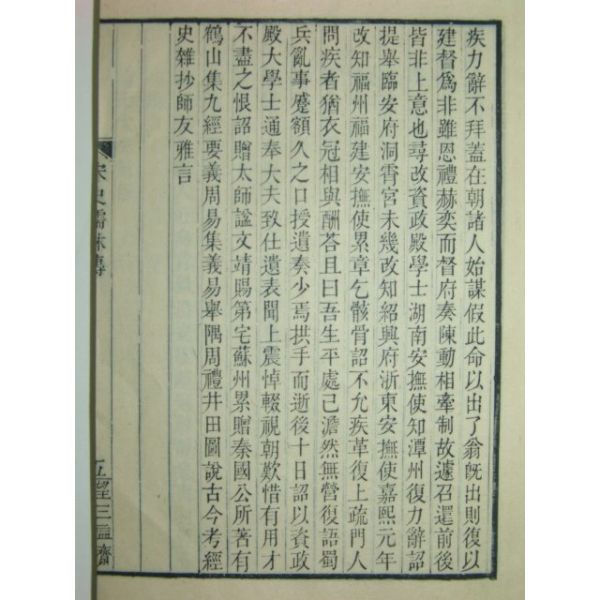 疾力辭不拜蓋在朝諸人始謀假此命以出了翁旣出則復以
建督爲非雖恩禮赫奕而督府奏陳動相牽制故遽召還前後
皆非上意也尋改資政殿學士湖南安撫使知潭州復力辭詔
提舉臨安府洞霄宮未幾改知紹興府浙東安撫使嘉熙元年
改知福州福建安撫使累章乞骸骨詔不允疾革復上疏門人
問疾者猶衣冠相與酬荅且曰吾生平處己澹然無營復語蜀
兵亂事蹙額久之口授遺奏少焉拱手而逝後十日詔以資政
殿大學士通奉大夫致仕遺表聞上震悼輟視朝歎惜有用才
不盡之恨詔贈太師諡文靖賜第宅蘇州累贈秦國公所著有
鶴山集九經要義周易集義易舉隅周禮井田圖說古今考經
史雜抄師友雅言
宋史儒林傳